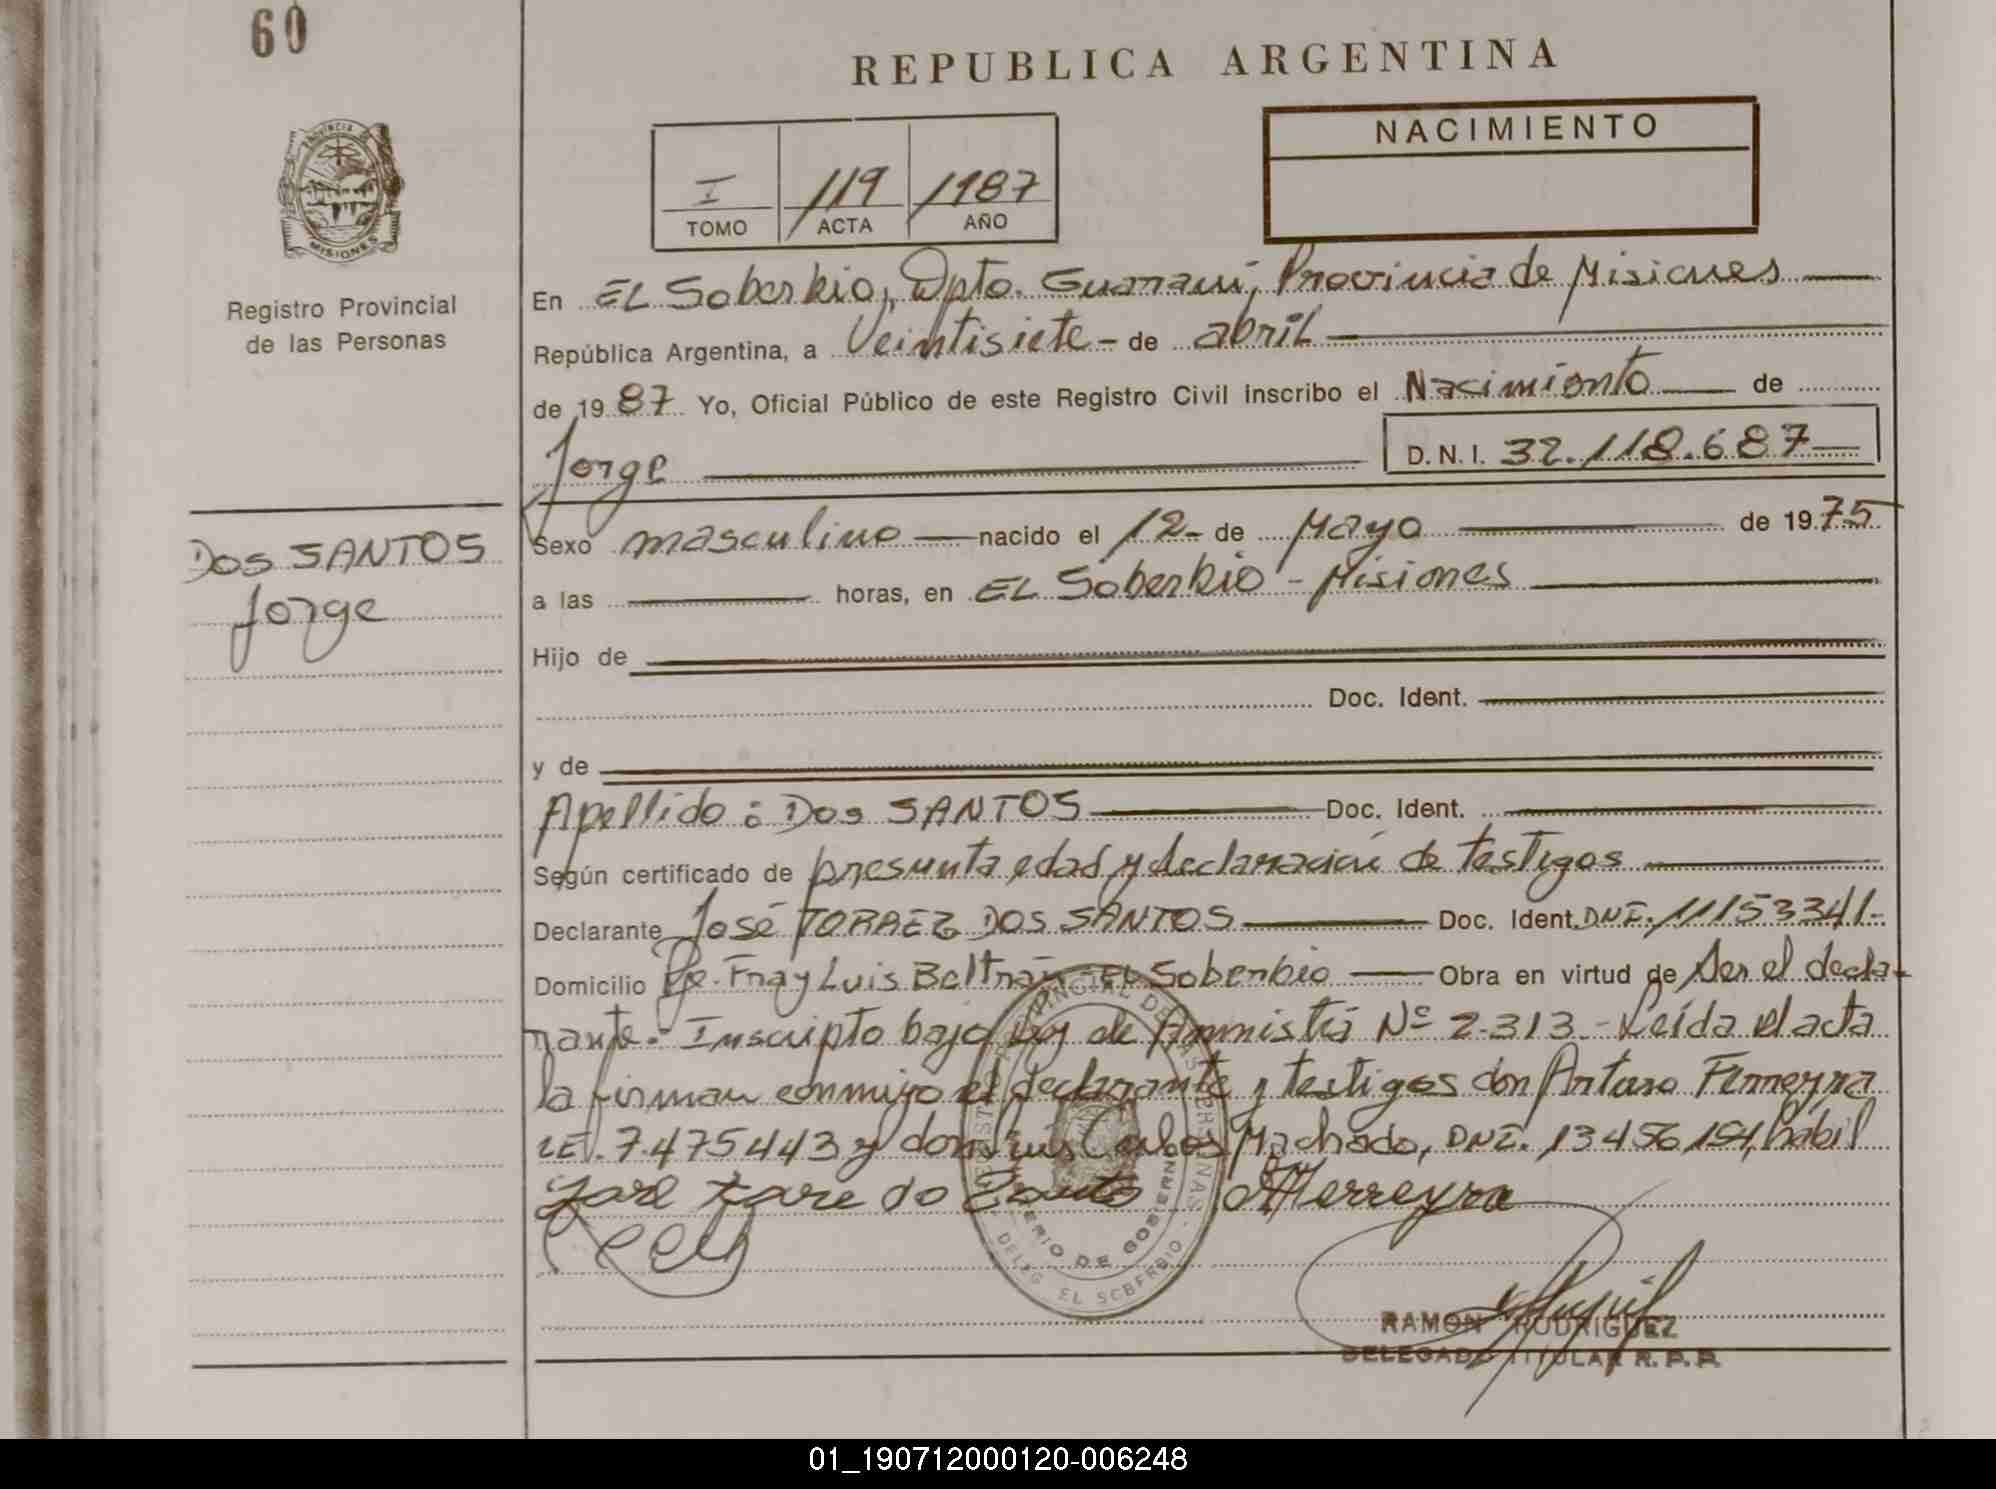 60
REPUBLICA ARGENTINA
PROVINCIA DE
MISIONES
Registro Provincial
de las Personas
I 119 1987
TOMO ACTA AÑO
NACIMIENTO
En EL Soberbio, Dpto. Guaraní, Provincia de Misiones
República Argentina, a Veintisiete - de abril
de 1987 Yo, Oficial Público de este Registro Civil inscribo el Nacimiento de
Jorge D.N.I. 32.118.687
DOS SANTOS
Jorge
Sexo masculino nacido el 12 - de Mayo de 1975
a las horas, en EL Soberbio - Misiones
Hijo de
Doc. Ident.
y de
Apellido: Dos SANTOS Doc. Ident.
Según certificado de presunta edad y declaración de testigos
Declarante José TORREZ DOS SANTOS Doc. Ident. DNI. 11153341-
Domicilio Fray Luis Beltrán - EL Soberbio Obra en virtud de ser el decla-
rante. - Inscripto bajo Ley de Amnistía Nº 2.313 - Leída el acta
la firman conmigo el declarante y testigos don Arturo Ferreyra
LE. 7.475443 y don Luis Carlos Machado, DNI. 13456194, hábil
AFerreyra
MINISTERIO DE GOBIERNO
DELEG. EL SOBERBIO
RAMON RODRIGUEZ
DELEGADO TITULAR R.P.P.
01_190712000120-006248